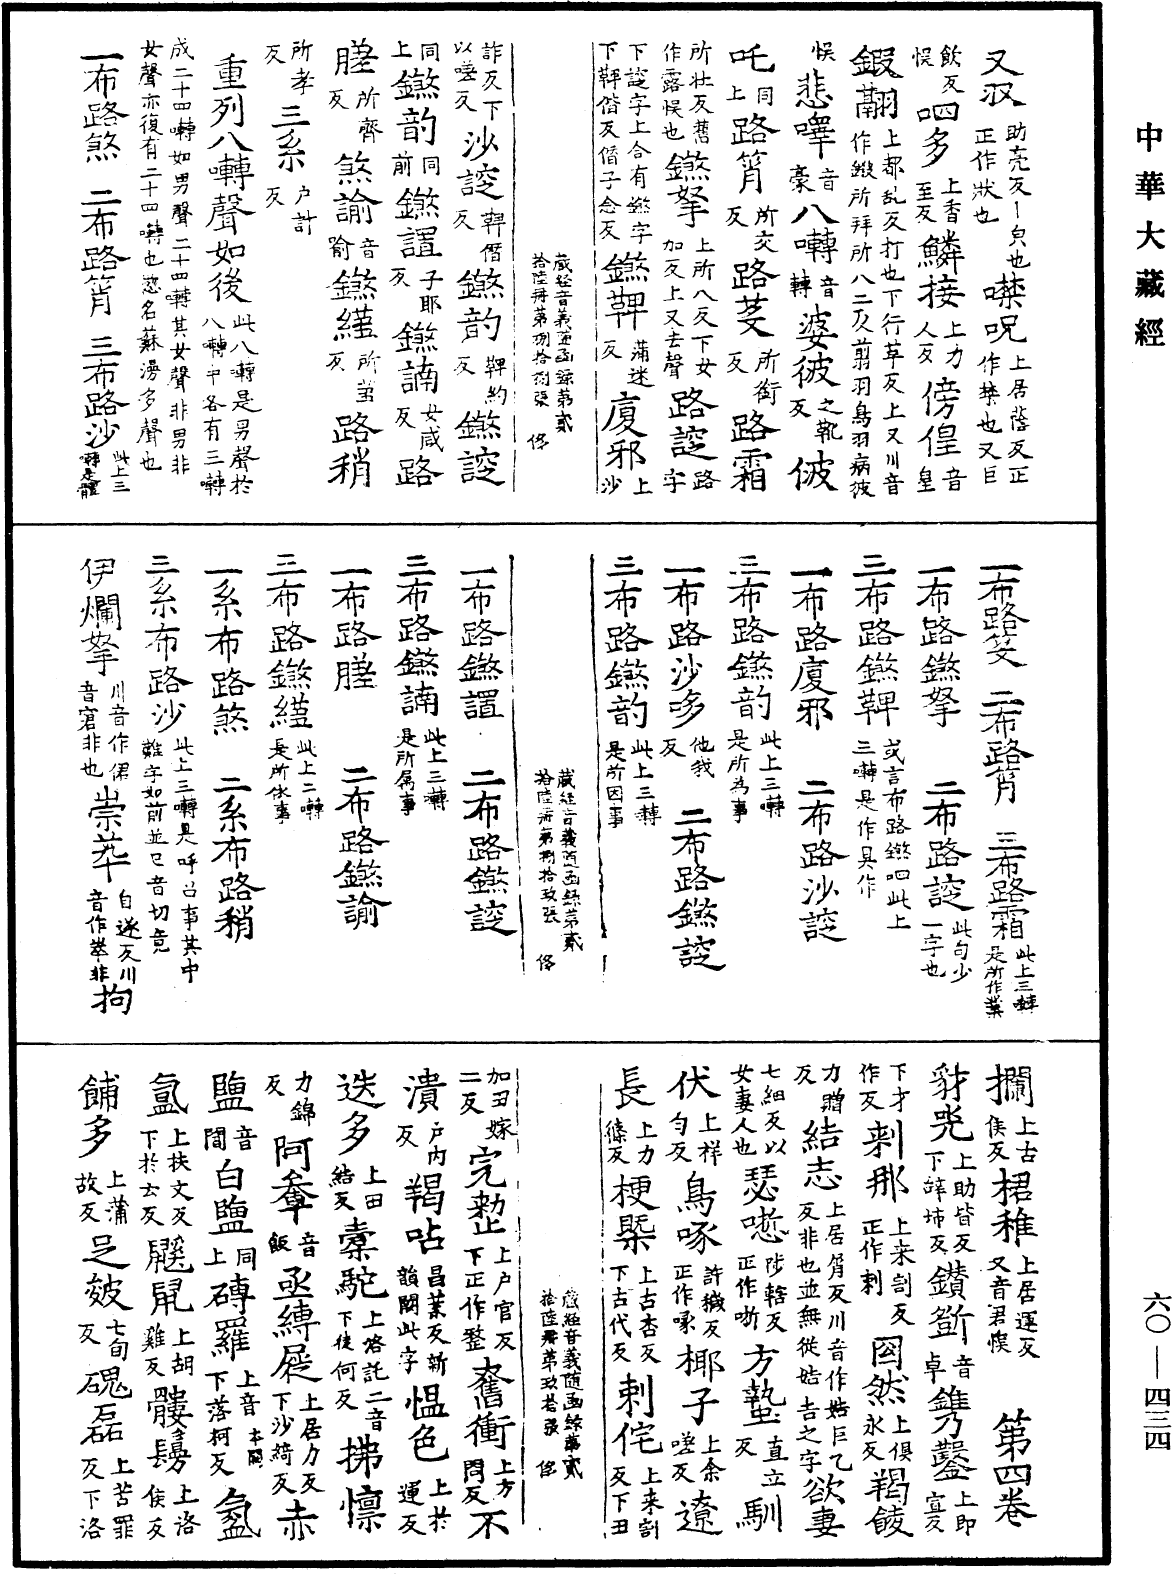 中華大藏經
六〇——四三四
又㕛助亮反丨㒵也正作狀也 㘔呪上居蔭反正作禁也又巨
飲反悮 呬多上香至反 鱗接上力人反 傍偟音皇
鍜翮上都乱反打也下行革反上又川音作鎩所拜所八二反翦羽鳥羽病彼
悮 悲嘷音豪 八囀音轉 婆彼之靴反 佊
吒同上 路筲所交反 路芟所銜反 路霜
所壮反舊作露悮也 鑠拏上所八反下女加反上又去聲 路諚路字
下諚字上合有鑠字下鞞偕反偕子念反 鑠鞞蒲迷反 廈邪上沙
藏経音義随函録第貳
拾陸冊第捌拾捌張 俢
詐反下以嗟反 沙諚鞞偕反 鑠韵鞞約反 鑠諚
同上 鑠韵同前 鑠謯子耶反 鑠諵女咸反 路
䐤所齊反 煞諭音喻 鑠䌉所監反 路稍
所孝反 三系户計反
重列八囀聲如後此八囀是男聲於八囀中各有三囀
成二十四囀如男聲二十四囀其女聲非男非
女聲亦復有二十四囀也惣名蘇漫多聲也
一布路煞 二布路筲 三布路沙此上三囀是體
一布路芟 二布路筲 三布路霜此上三囀是所作業
一布路鑠拏 二布路諚此句少一字也
三布路鑠鞞或言布路鑠呬此上三囀是作具作
一布路廈邪 二布路沙諚
三布路鑠韵此上三囀是所為事
一布路沙哆他我反 二布路鑠諚
三布路鑠韵此上三轉是所因事
藏経音義随函録第貳
拾陸冊第捌拾玖張 俢
一布路鑠謯 二布路鑠諚
三布路鑠諵此上三囀是所属事
一布路䐤 二布路鑠諭
三布路鑠䌉此上二囀是所依事
一系布路煞 二系布路稍
三系布路沙此上三囀是呼召事其中難字如前並已音切竟
伊爛拏川音作㑮音窘非也 崇萃自遂反川音作㧾非 拘
攔上古侯反 桾稚上居運反又音君悮 第四卷
豺兕上助皆反下辝姊反 鑽斲音卓 鐫鑿上即宣反
下才作反 刺那上来割反正作剌 囧然上俱永反 羯䔖
力贈反 結志上居屑反川音作姞巨乙反非也並無從姞吉之字 欲妻
七細反以女妻人也 瑟噁陟轄反正作哳 方蟄直立反 馴
伏上祥匀反 鳥啄許穢反正作喙 椰子上余嗟反 遼
長上力條反 梗槩上古杏反下古代反 剌侘上来割反下丑
藏経音義随函録第貳
拾陸冊第玖拾張 俢
加丑嫁二反 完㔢上户官反下正作整 奮衝上方問反 不
潰户内反 羯呫昌葉反新韻闕此字 愠色上於運反
迭多上田結反 橐駞上他各託二音下徒何反 拂懔
力錦反 阿輋音飯 亟縛屣上居力反下沙綺反 赤
鹽音閻 白鹽同上 磚羅上音本闕下落柯反 氤
氳上扶文反下於云反 鼷鼠上胡雞反 髏鬘上洛侯反
餔多上蒲故反 足皴七旬反 磈磊上苦罪反下洛